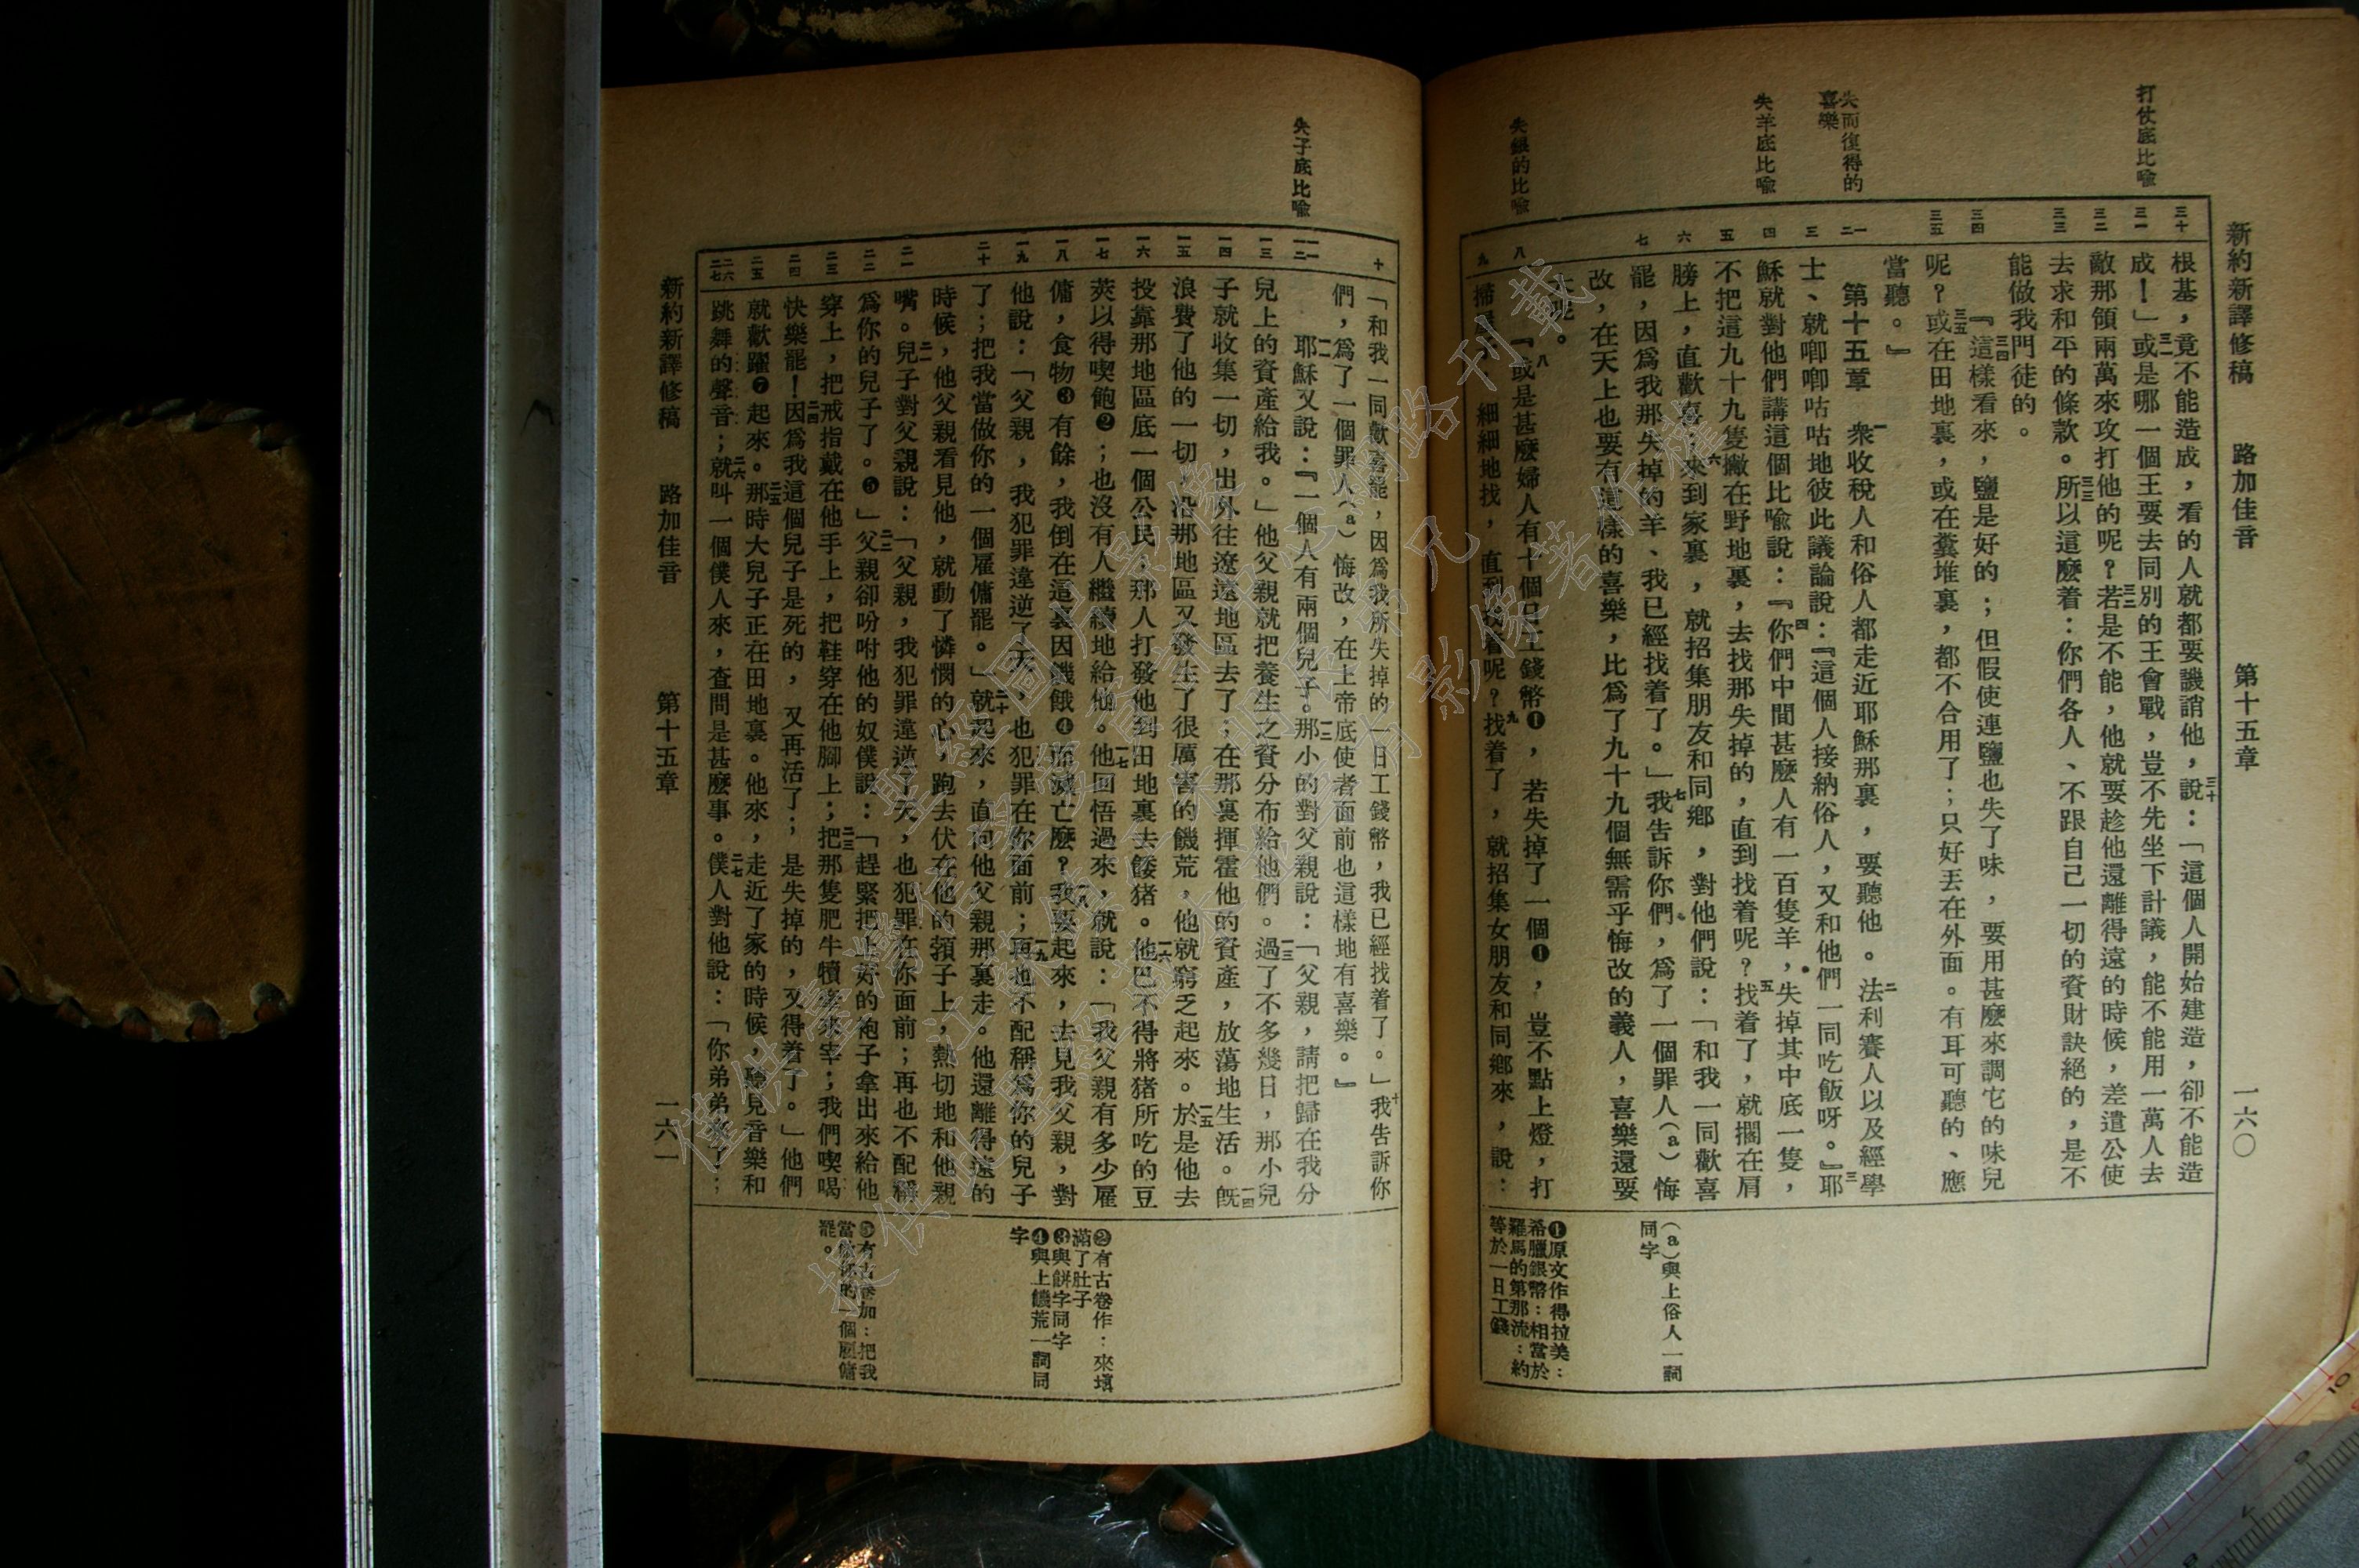 新約新譯修稿　路加佳音　第十五章　一六〇
打仗底比喻
失而復得的
喜樂
失羊底比喻
失銀的比喻
三十
三一
三二
三三
三四
三五
一二
三
四
五
六
七
八
九
根基，竟不能造成，看的人就都要譏誚他，三十說：「這個人開始建造，卻不能造
成！」三一或是哪一個王要去同別的王會戰，豈不先坐下計議，能不能用一萬人去
敵那領兩萬來攻打他的呢？三二若是不能，他就要趁他還離得遠的時候，差遣公使
去求和平的條款。三三所以這麼着：你們各人、不跟自己一切的資財訣絕的，是不
能做我門徒的。
三四『這樣看來，鹽是好的；但假使連鹽也失了味，要用甚麼來調它的味兒
呢？三五或在田地裏，或在糞堆裏，都不合用了；只好丟在外面。有耳可聽的、應
當聽。』
第十五章　一衆收稅人和俗人都走近耶穌那裏，要聽他。二法利賽人以及經學
士、就唧唧咕咕地彼此議論說：『這個人接納俗人，又和他們一同吃飯呀。』三耶
穌就對他們講這個比喻說：四『你們中間甚麼人有一百隻羊，失掉其中底一隻，
不把這九十九隻撇在野地裏，去找那失掉的，直到找着呢？五找着了，就擱在肩
膀上，直歡喜；六來到家裏，就招集朋友和同鄉，對他們說：「和我一同歡喜
罷，因爲我那失掉的羊、我已經找着了。」七我告訴你們，爲了一個罪人（a）悔
改，在天上也要有這樣的喜樂，比爲了九十九個無需乎悔改的義人，喜樂還要
大呢。
八『或是甚麼婦人有十個日工錢幣❶，若失掉了一個❶，豈不點上燈，打
掃房子，細細地找，直到找着呢？九找着了，就招集女朋友和同鄉來，說：
（a）與上俗人一詞
同字
❶原文作得拉美：
希臘銀幣：相當於
羅馬的第那流：約
等於一日工錢
失子底比喻
十
一一
一二
一三
一四
一五
一六
一七
一八
一九
二十
二一
二二
二三
二四
二五
二六
二七
「和我一同歡喜罷，因爲我所失掉的一日工錢幣，我已經找着了。」十我告訴你
們，爲了一個罪人（a）悔改，在上帝底使者面前也這樣地有喜樂。』
一一耶穌又說：『一個人有兩個兒子。一二那小的對父親說：「父親，請把歸在我分
兒上的資產給我。」他父親就把養生之資分布給他們。一三過了不多幾日，那小兒
子就收集一切，出外往遼遠地區去了；在那裏揮霍他的資產，放蕩地生活。一四旣
浪費了他的一切，沿那地區又發生了很厲害的饑荒，他就窮乏起來。一五於是他去
投靠那地區底一個公民；那人打發他到田地裏去餧猪。一六他巴不得將猪所吃的豆
莢以得喫飽❷；也沒有人繼續地給他。一七他回悟過來，就說：「我父親有多少雇
傭，食物❸有餘，我倒在這裏因饑餓❹而滅亡麼？一八我要起來，去見我父親，對
他說：「父親，我犯罪違逆了天，也犯罪在你面前；一九再也不配稱爲你的兒子
了；把我當做你的一個雇傭罷。」二十就起來，直向他父親那裏走。他還離得遠的
時候，他父親看見他，就動了憐憫的心，跑去伏在他的頸子上，熱切地和他親
嘴。二一兒子對父親說：「父親，我犯罪違逆了天，也犯罪在你面前；再也不配稱
爲你的兒子了。❺」二二父親卻吩咐他的奴僕說：「趕緊把上好的袍子拿出來給他
穿上，把戒指戴在他手上，把鞋穿在他腳上；二三把那隻肥牛犢牽來宰；我們喫喝
快樂罷！二四因爲我這個兒子是死的，又再活了；是失掉的，又得着了。」他們
就歡躍❼起來。二五那時大兒子正在田地裏。他來，走近了家的時候，聽見音樂和
跳舞的聲音；二六就叫一個僕人來，查問是甚麼事。二七僕人對他說：「你弟弟來了；
❷有古卷作：來塡
滿了肚子
❸與餅字同字
❹與上饑荒一詞同
字
❺有古卷加：把我
當做你的一個雇傭
罷。
新約新譯修稿　路加佳音　第十五章　一六一